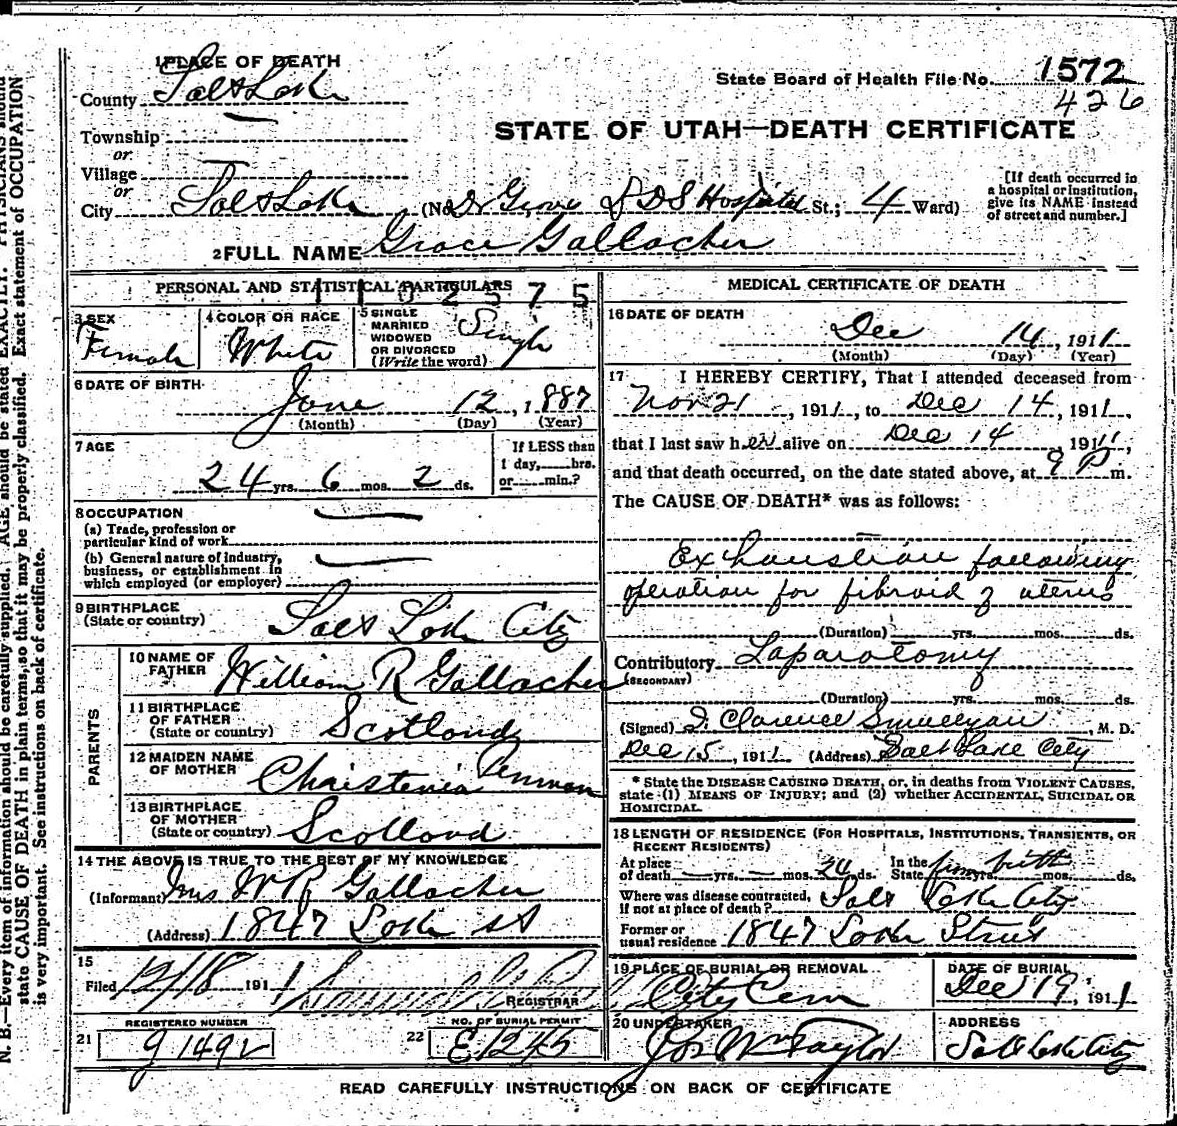 1 PLACE OF DEATH
County Salt Lake
State Board of Health File No. 1572
426
STATE OF UTAH—DEATH CERTIFICATE
Township
or
Village
or
City Salt Lake (No. Dr Groves LDS Hospital St.; 4 Ward)
[If death occurred in a hospital or institution, give its NAME instead of street and number.]
2 FULL NAME Grace Gallacher
PERSONAL AND STATISTICAL PARTICULARS
2 5 7 5
3 SEX
Female
4 COLOR OR RACE
White
5 SINGLE
MARRIED
WIDOWED
OR DIVORCED
(Write the word)
Single
6 DATE OF BIRTH
June 12, 1887
(Month) (Day) (Year)
7 AGE
24 yrs. 6 mos. 2 ds.
If LESS than
1 day, hrs.
or min.?
8 OCCUPATION
(a) Trade, profession or
particular kind of work
(b) General nature of industry,
business, or establishment in
which employed (or employer)
9 BIRTHPLACE
(State or country)
Salt Lake City
PARENTS
10 NAME OF
FATHER
William R Gallacher
11 BIRTHPLACE
OF FATHER
(State or country)
Scotland
12 MAIDEN NAME
OF MOTHER
Christenia Penman
13 BIRTHPLACE
OF MOTHER
(State or country)
Scotland
14 THE ABOVE IS TRUE TO THE BEST OF MY KNOWLEDGE
(Informant) Mrs W R Gallacher
(Address) 1847 Lake St
15
Filed 12/18 1911
REGISTRAR
REGISTERED NUMBER
21 g 1492
NO. OF BURIAL PERMIT
22 E1245
MEDICAL CERTIFICATE OF DEATH
16 DATE OF DEATH
Dec 14, 1911
(Month) (Day) (Year)
17 I HEREBY CERTIFY, That I attended deceased from
Nov 21, 1911, to Dec 14, 1911,
that I last saw her alive on Dec 14, 1911,
and that death occurred, on the date stated above, at 9 P m.
The CAUSE OF DEATH* was as follows:
Exhaustion following
operation for fibroid of uterus
(Duration) yrs. mos. ds.
Contributory Laparotomy
(SECONDARY)
(Duration) yrs. mos. ds.
(Signed) Clarence M. D.
Dec 15, 1911 (Address) Salt Lake City
* State the DISEASE CAUSING DEATH, or, in deaths from VIOLENT CAUSES,
state (1) MEANS OF INJURY; and (2) whether ACCIDENTAL, SUICIDAL OR
HOMICIDAL.
18 LENGTH OF RESIDENCE (FOR HOSPITALS, INSTITUTIONS, TRANSIENTS, OR
RECENT RESIDENTS)
At place
of death — yrs. — mos. 24 ds.
In the
State from birth yrs. mos. ds.
Where was disease contracted,
if not at place of death? Salt Lake City
Former or
usual residence 1847 Lake Street
19 PLACE OF BURIAL OR REMOVAL
City Cem
DATE OF BURIAL
Dec 19, 1911
20 UNDERTAKER
Jos Wm Taylor
ADDRESS
Salt Lake City
READ CAREFULLY INSTRUCTIONS ON BACK OF CERTIFICATE
N. B.—Every item of information should be carefully supplied. AGE should be stated EXACTLY. PHYSICIANS should
state CAUSE OF DEATH in plain terms, so that it may be properly classified. Exact statement of OCCUPATION
is very important. See instructions on back of certificate.